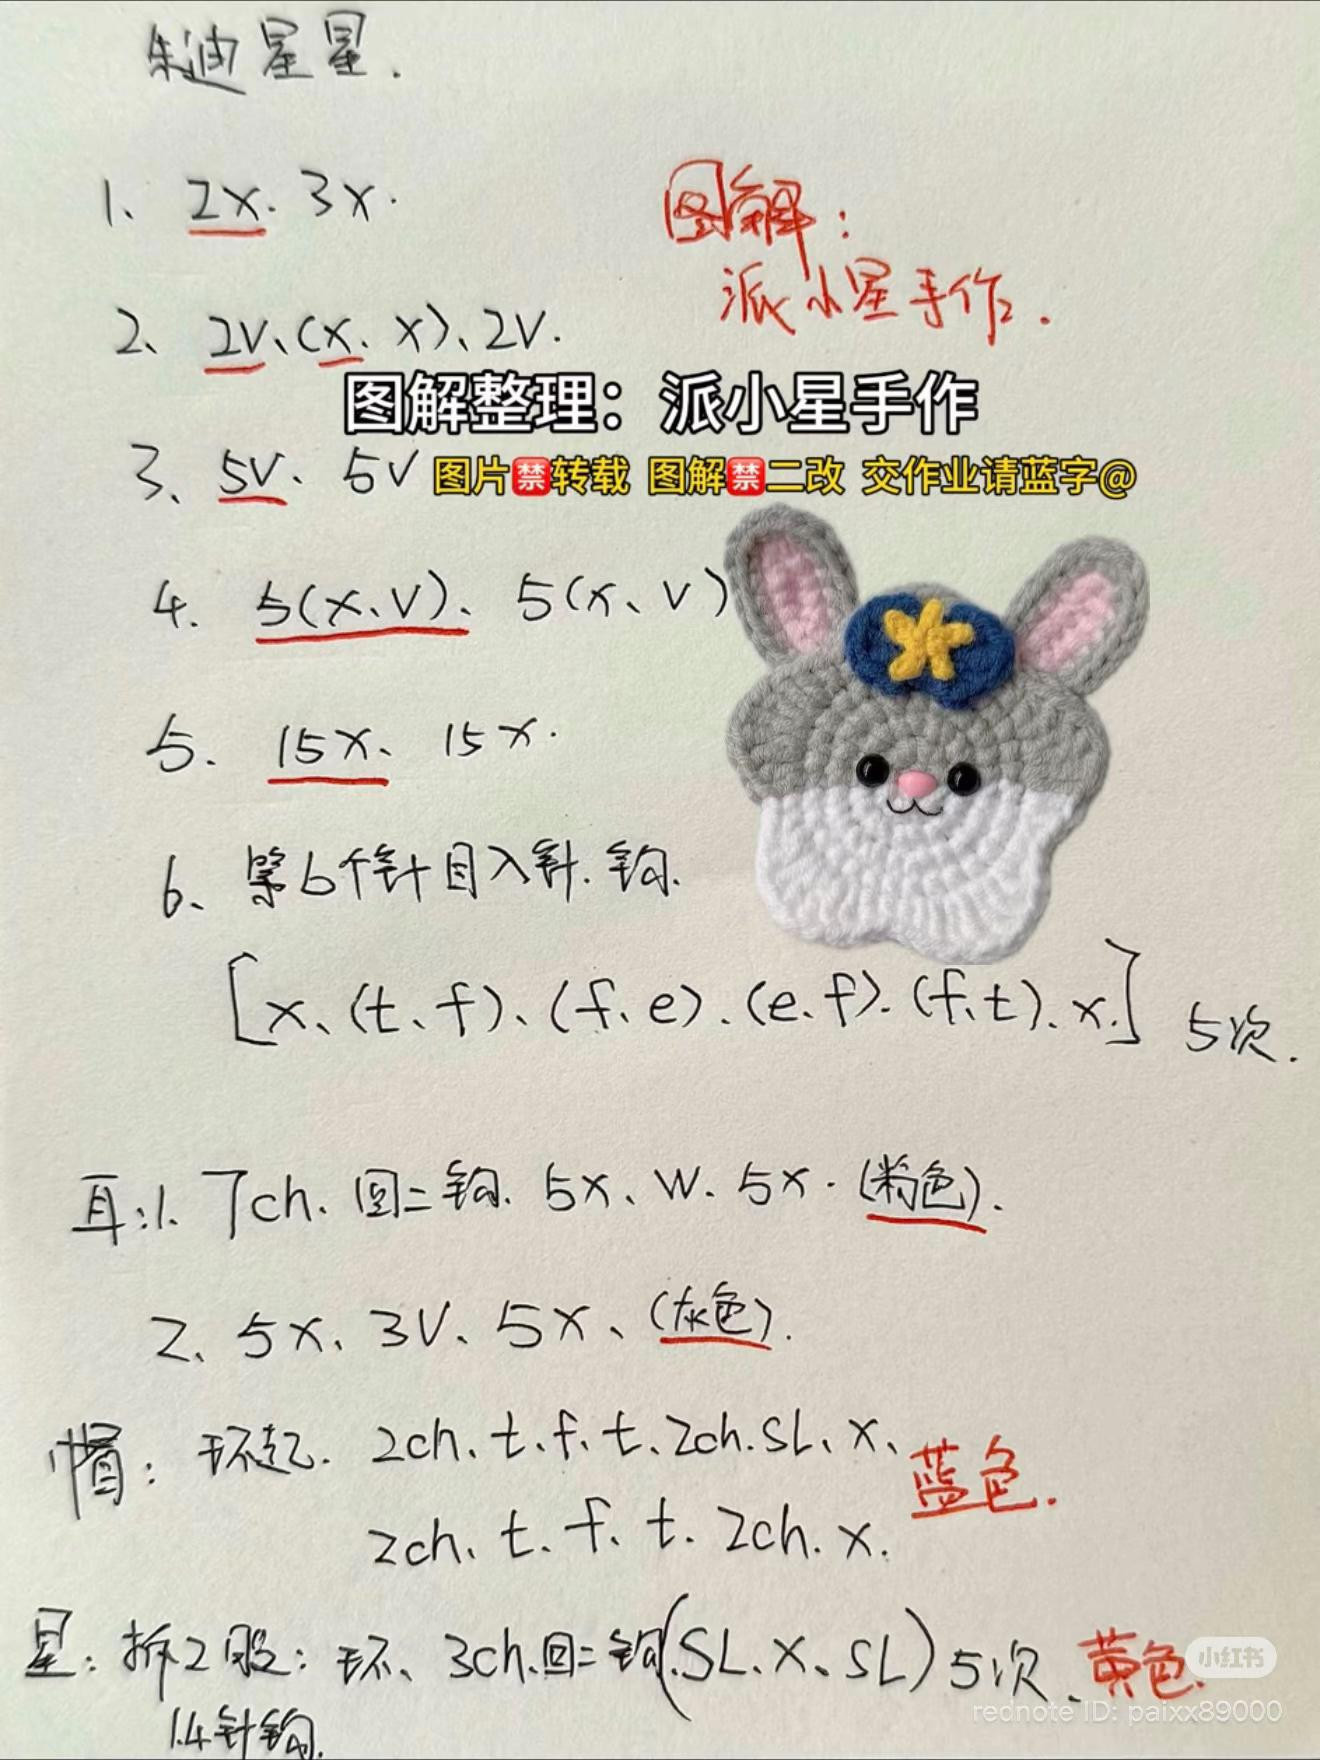 朱迪星星.
1、2x、3x.
图解:
派小星手作.
2、2V、(x、x)、2V.
图解整理：派小星手作
3、5V、5V
图片🈲转载 图解🈲二改 交作业请蓝字@
4. 5(x、V)、5(x、V)
5. 15x、15x.
6、第6个针目入针.钩.
[x、(t、f)、(f、e).(e.f).(f.t).x.] 5次.
耳:1. 7ch、回二钩.5x、W.5x.(粉色).
2、5x、3V、5x、(灰色).
帽: 环起.2ch、t.f、t、2ch.SL、x、
蓝色.
2ch、t.f、t.2ch.x.
星:拆2股:环、3ch.回二钩.(SL、x、SL)5次、黄色.
1.4针钩.
小红书
rednote ID: paixx89000